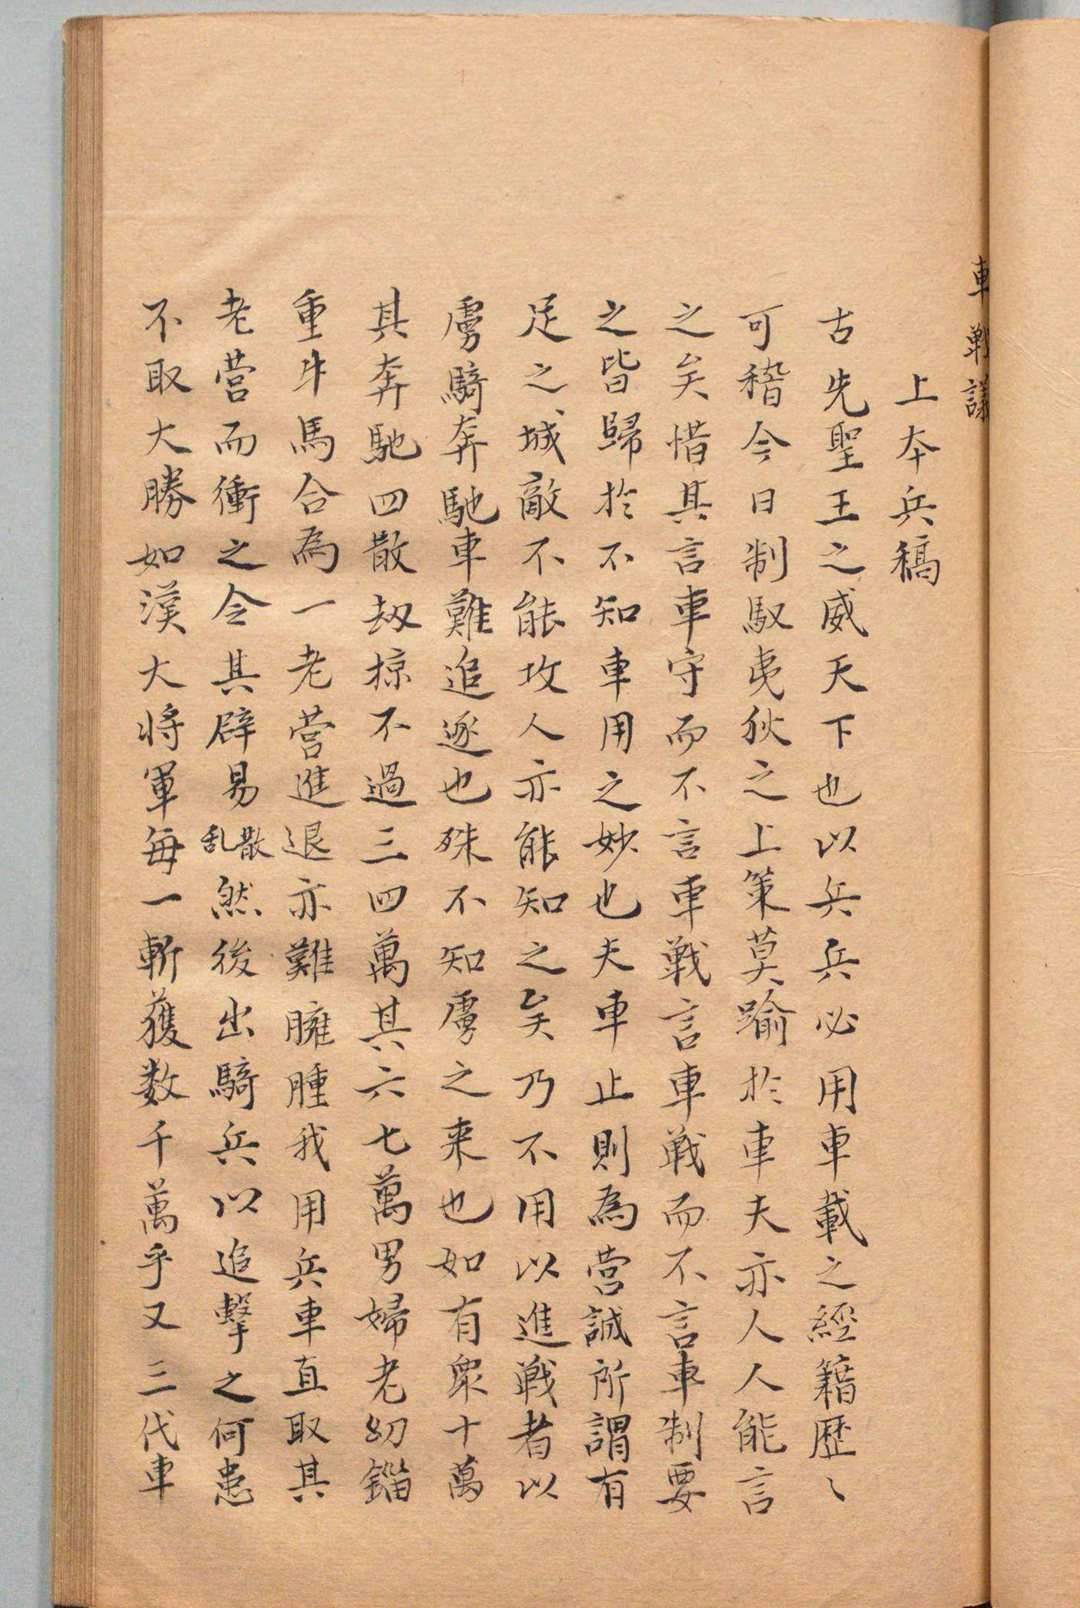 車戰議
上本兵稿
古先聖王之威天下也以兵兵必用車載之經籍歴〻
可稽今日制馭夷狄之上策莫踰於車夫亦人人能言
之矣惜其言車守而不言車戰言車戰而不言車制要
之皆歸於不知車用之妙也夫車止則為營誠所謂有
足之城敵不能攻人亦能知之矣乃不用以進戰者以
虜騎奔馳車難追逐也殊不知虜之来也如有衆十萬
其奔馳四散劫掠不過三四萬其六七萬男婦老幼錙
重牛馬合為一老營進退亦難臃腫我用兵車直取其
老營而衝之令其辟易散乱然後出騎兵以追擊之何患
不取大勝如漢大將軍每一斬獲数千萬乎又三代車